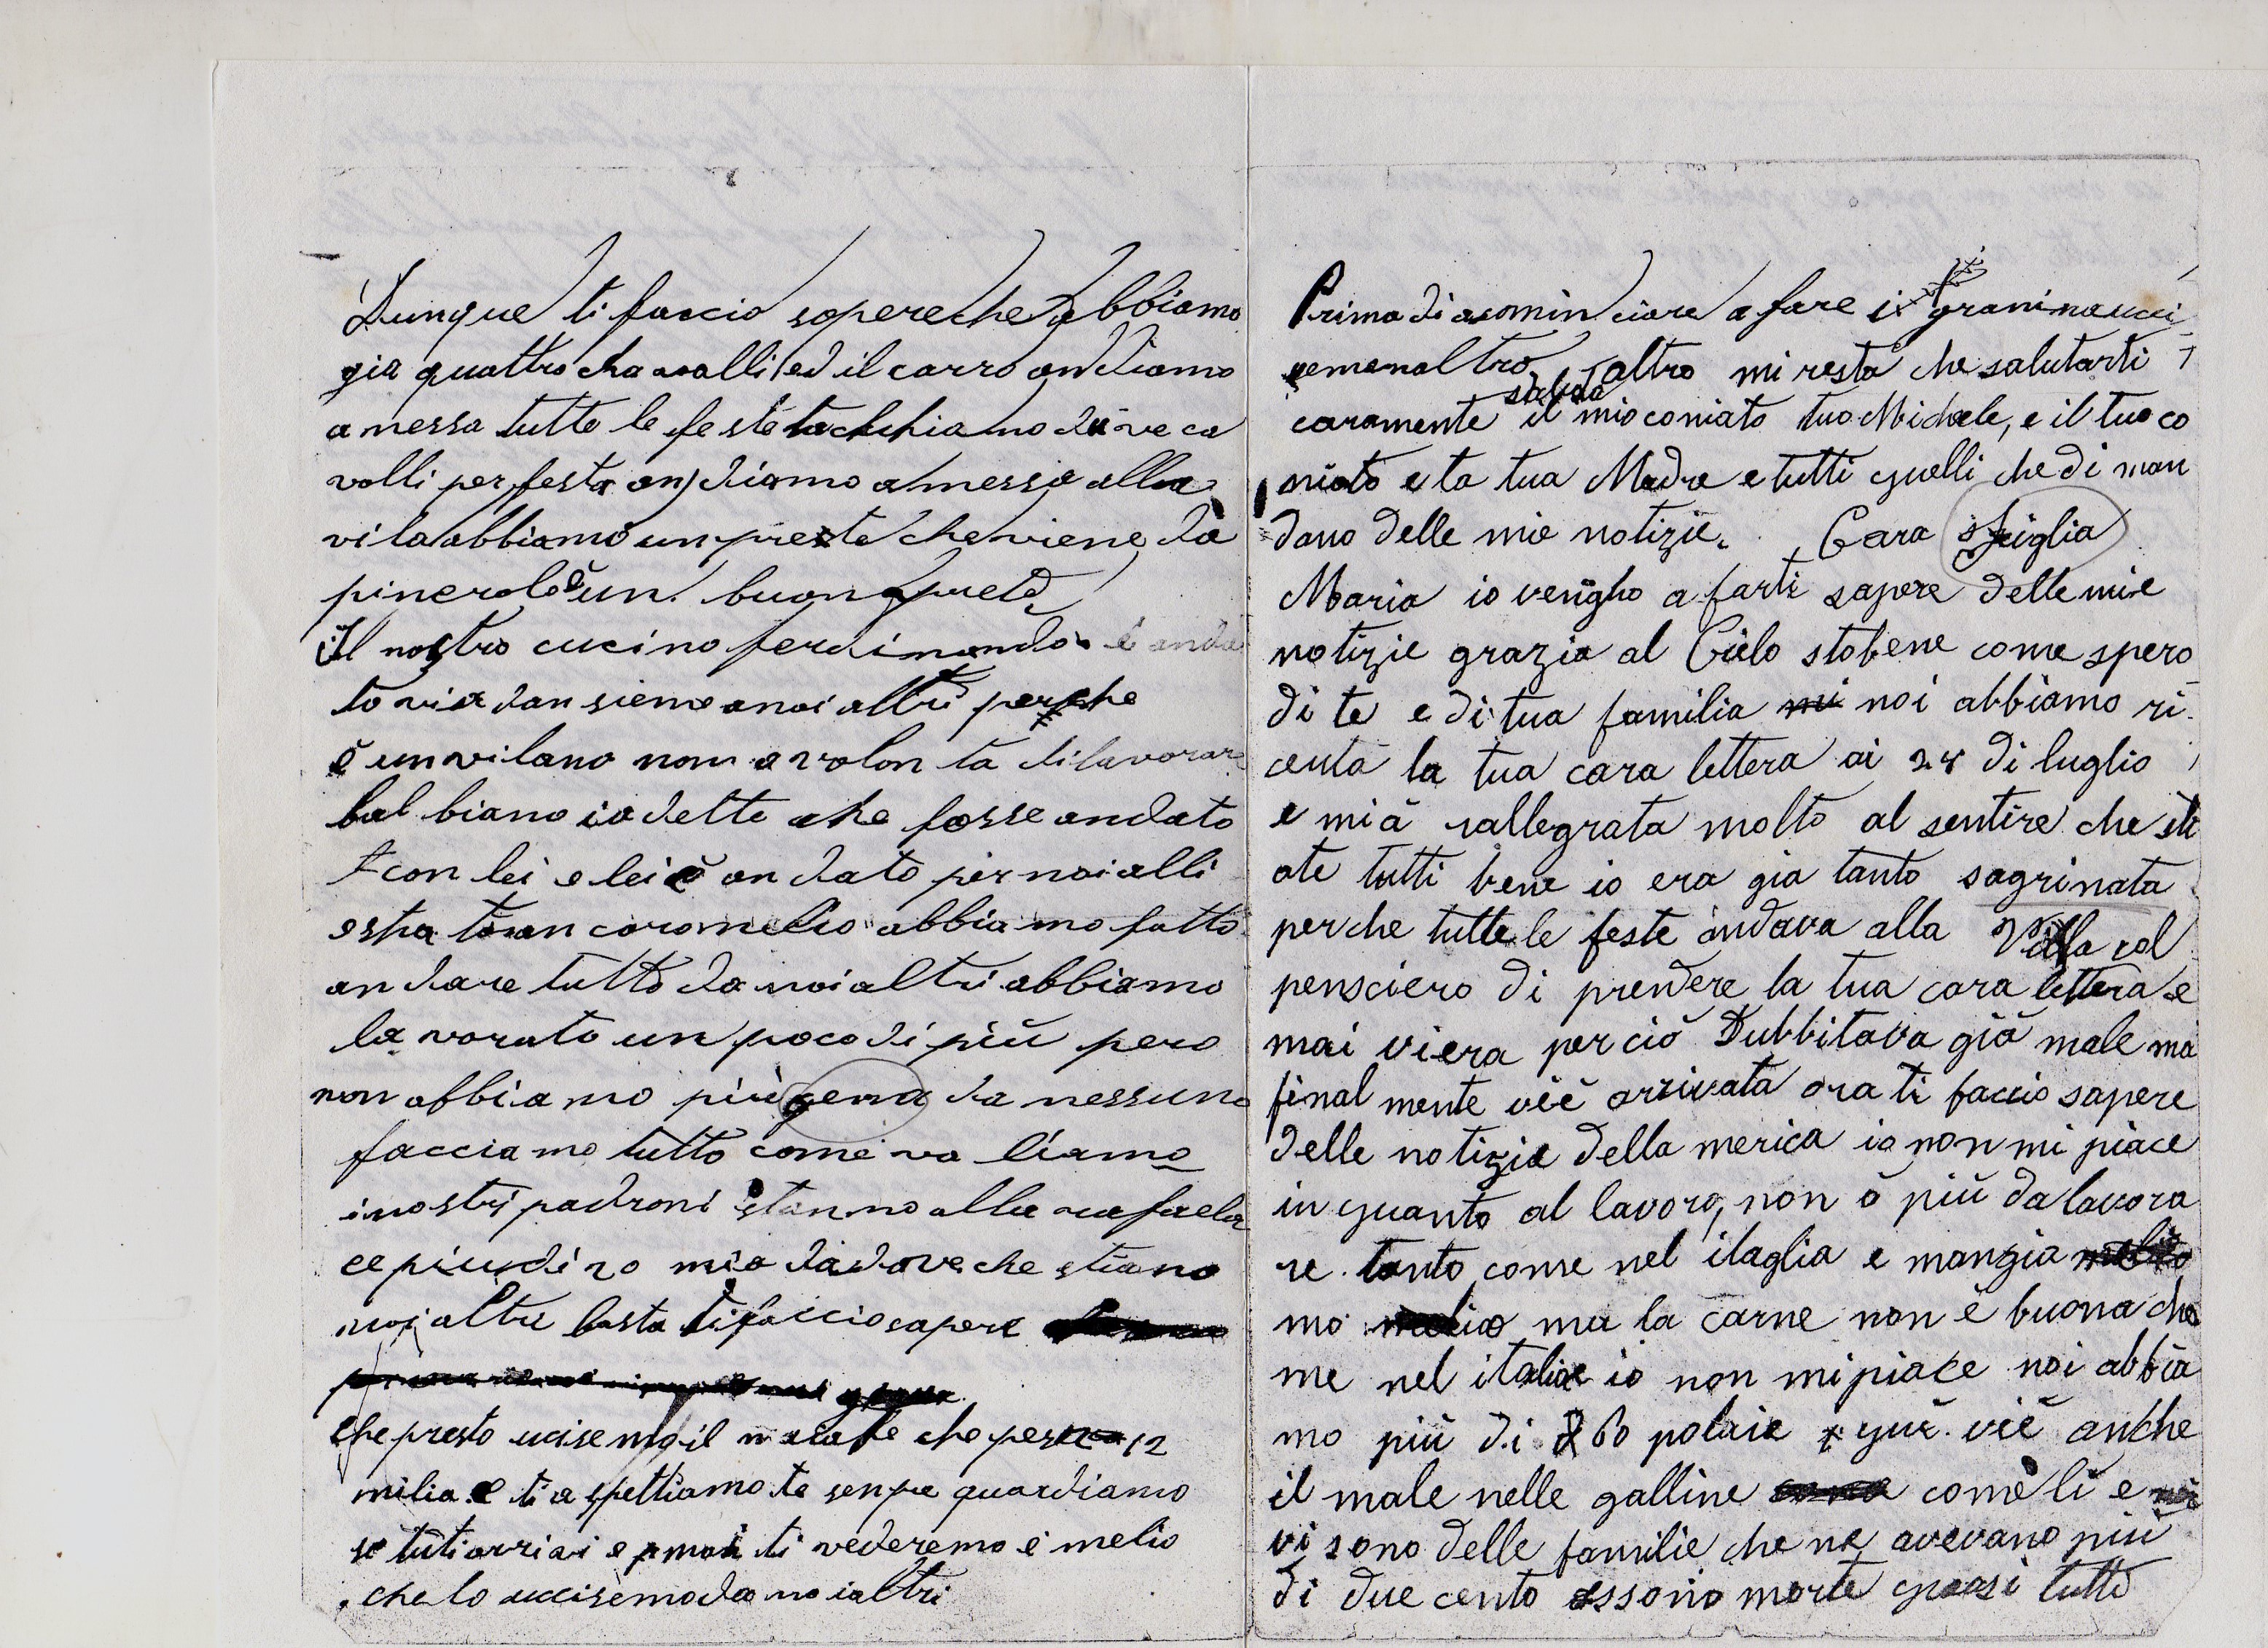 Dunque ti faccio sapere che abbiamo
gia quattro chavalli ed il carro andiamo
a messa tutte le feste tachhiamo due ca
valli per festa andiamo a messa alla
vila abbiamo un prete che viene da
pinerolo è un buon prete
Il nostro cucino ferdinando è anda
to via dansieme a noi altri perche
è un vilano non a volon tà di lavorare
balbiano ia dette che fosse andato
con lei e lei è andato per noi alli
esta to an coro melio abbiamo fatto
andare tutto da noi altri abbiamo
la vorato un poco di più pero
non abbiamo più gena da nessuno
facciamo tutto come va liamo
i nostri padroni stanno alla rafaela
ce piu di 20 mia da dove che stiamo
noi altri basta ti faccio sapere
che presto ucisemo il maiale che pesa 12
milia e ti a spettiamo te senpre guardiamo
se tuti arrivi e mai ti vederemo è melio
che lo uccisemo da noialtri
Prima di acomin ciare a fare i grani noucci
gemenaltro altro mi resta che salutarti
caramente saluda il mio coniato tuo Michele, e il tuo co
niato e la tua Madre e tutti quelli che di man
dano delle mie notizie. Cara figlia
Maria io vengho a farti sapere delle mie
notizie grazia al Cielo sto bene come spero
di te e di tua familia noi abbiamo ri
ceuta la tua cara lettera ai 24 di luglio
e mi à rallegrata molto al sentire che sti
ate tutti bene io era gia tanto sagrinata
perche tutte le feste andava alla Villa col
pensciero di prendere la tua cara lettera e
mai viera per ciò Dubbitava già male ma
final mente viè arrivata ora ti faccio sapere
delle notizie della merica io non mi piace
in quanto al lavoro, non ò più da lavora
re tanto come nel itaglia e mangia
mo melio ma la carne non è buona cho
me nel italia io non mi piace noi abbia
mo più di 60 polaie qui viè anche
il male nelle galline comè li e
vi sono delle familie che ne avevano più
di due cento essono morte quasi tutte